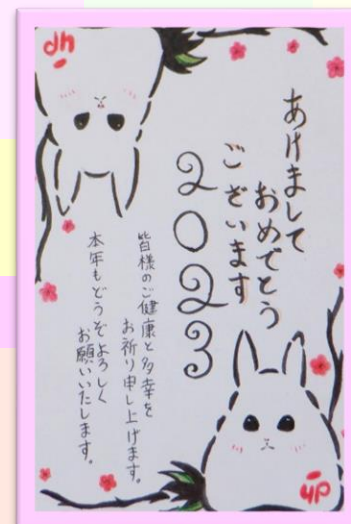 あけまして
おめでとう
ございます
2023
皆様のご健康と多幸を
お祈り申し上げます。
本年もどうぞよろしく
お願いいたします。